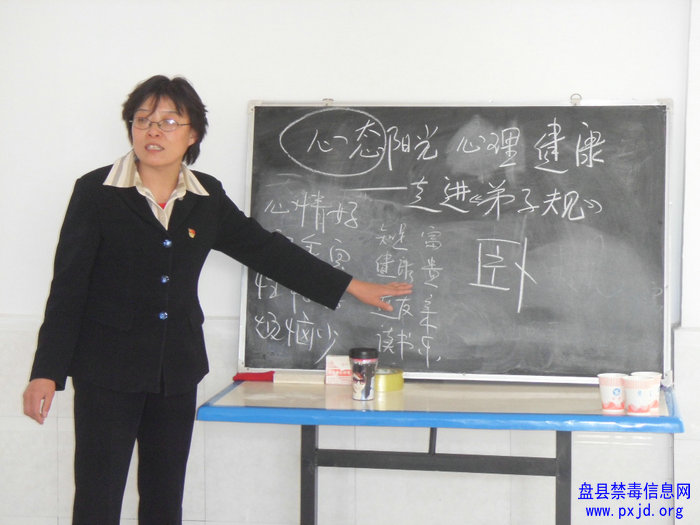 心态阳光 心理健康
——走进《弟子规》
心情好
烦恼少
知足 富
健康 贵
友 美
读书 乐
卧
盘县禁毒信息网
www.pxjd.org